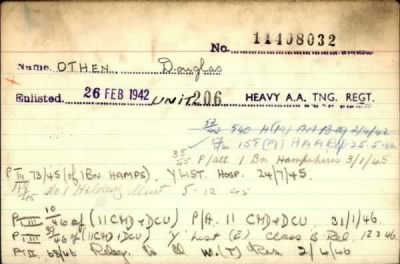 No. 11408032
Name OTHEN Douglas
Enlisted. 26 FEB 1942 UNIT. 206 HEAVY A.A. TNG. REGT.
540 H(M) 2/4/42
158 (M) HAA 25.5.42
35/45 P/att 1 Bn Hampshires 3/1/45
P III 73/45 (of 1 BN HAMPS). Y LIST. HOSP. 24/7/45.
No 1 Holding 5-12-45
P III 10/46 of (11 CHD & DCU) P/A. 11 CHD & DCU. 31/1/46.
of (11 CHD & DCU) 'Y' List (E) Class B Rel. 12 3 46.
P III 68/46 to W.(T) Res. 2/4/46